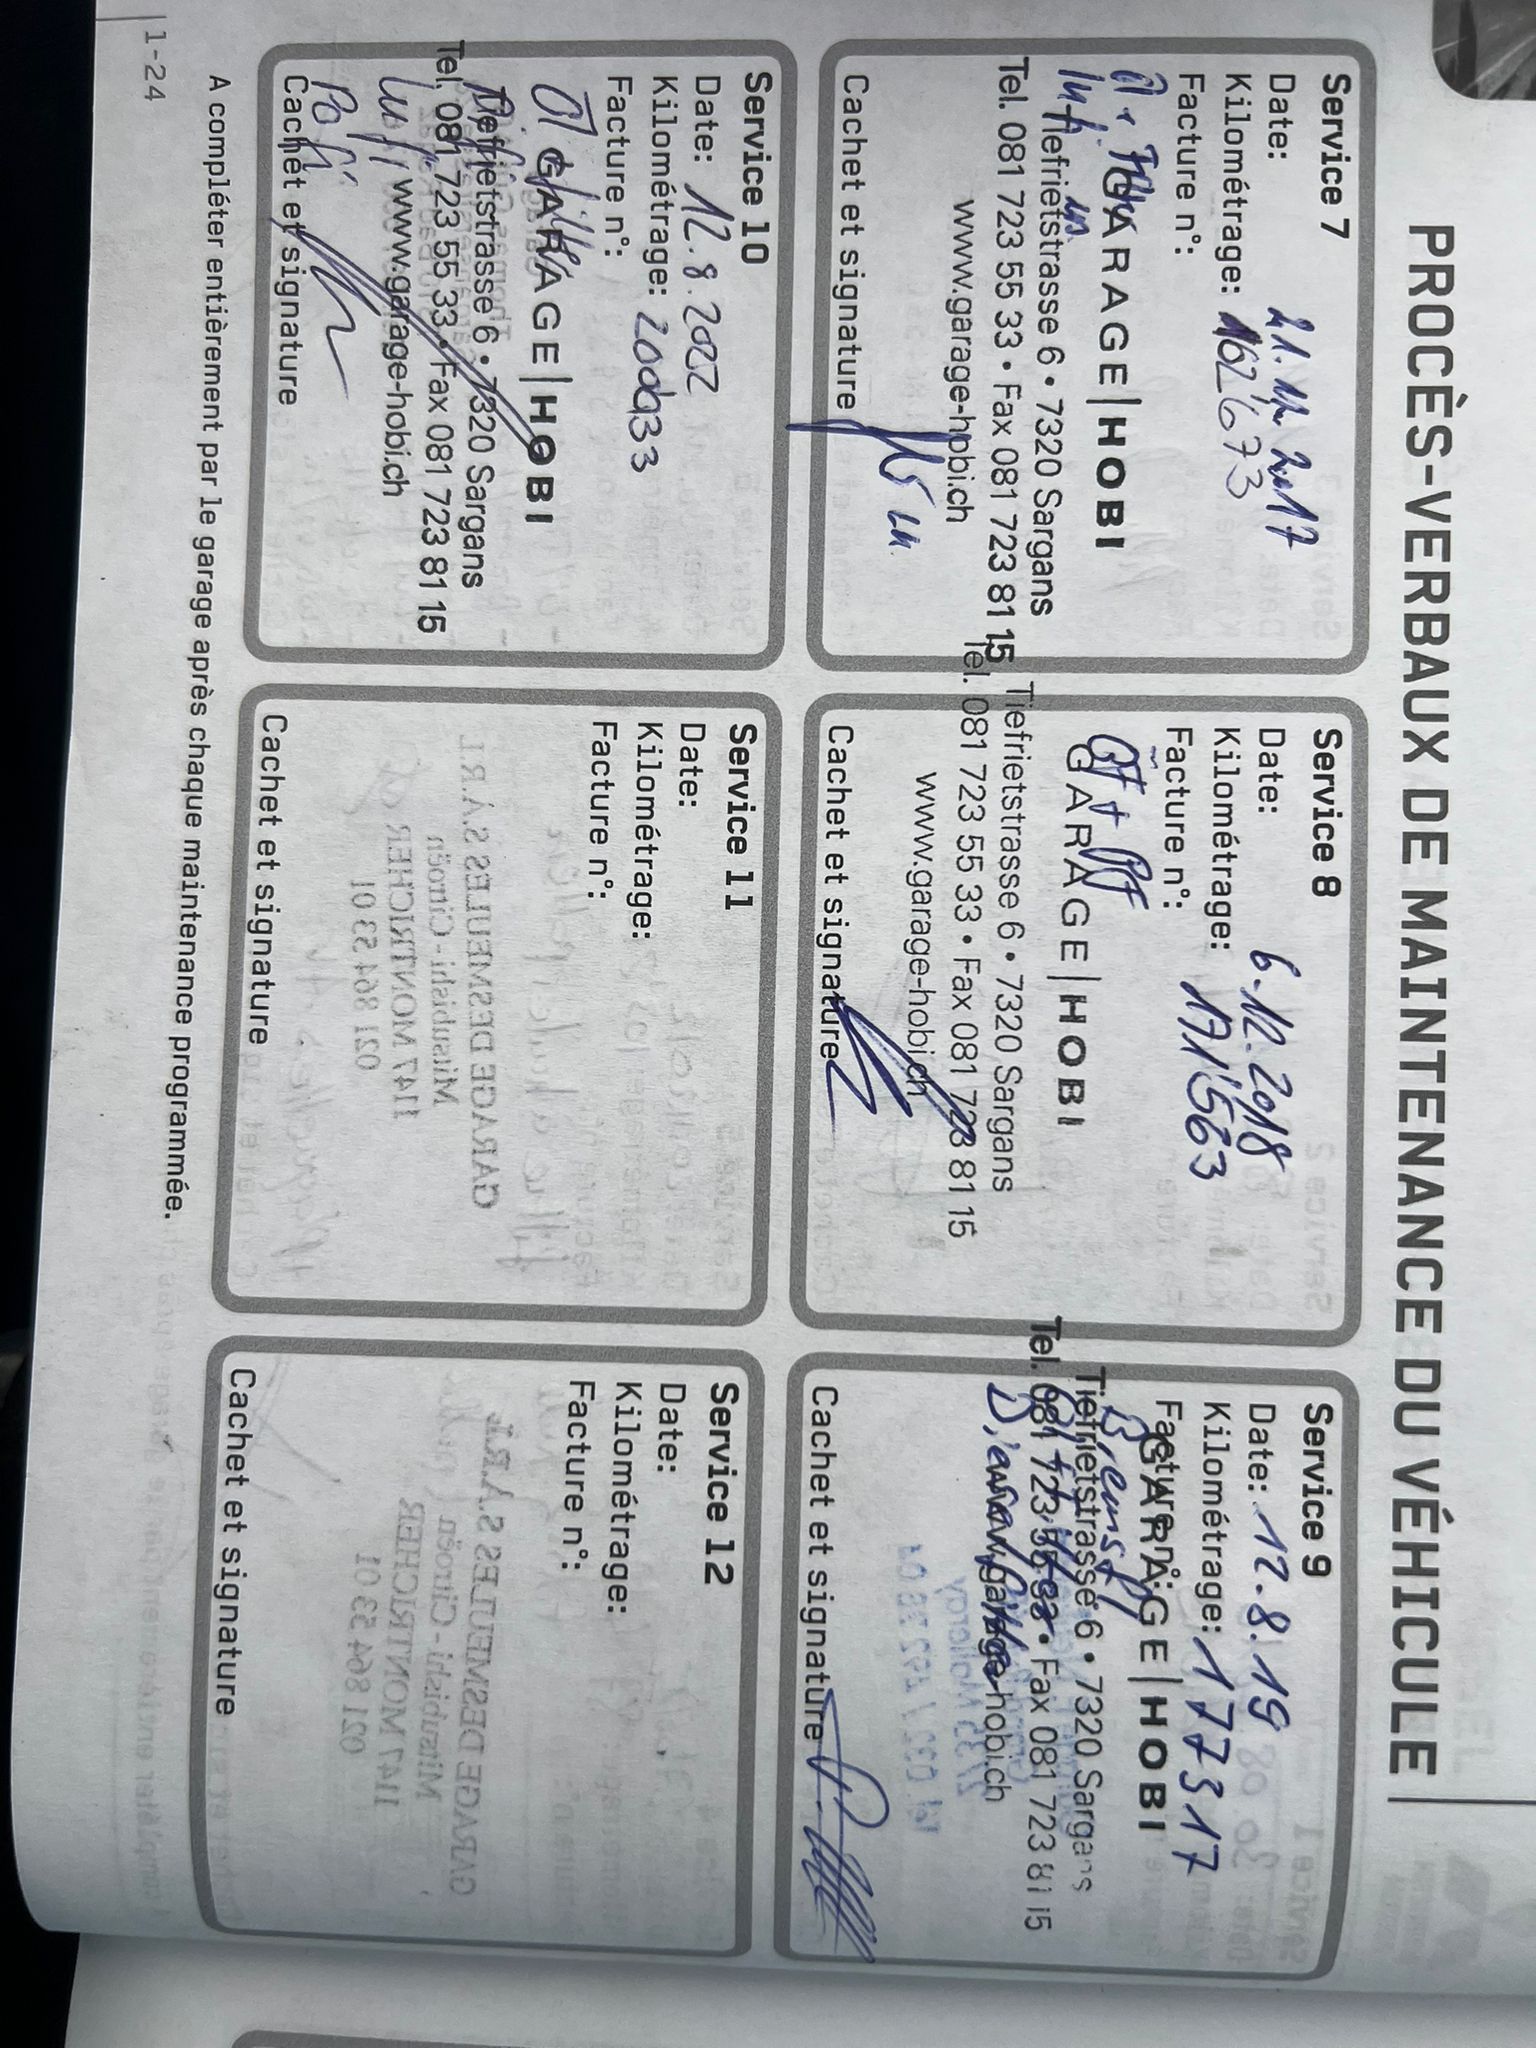 PROCÈS-VERBAUX DE MAINTENANCE DU VÉHICULE
Service 7
Date: 2017
Kilométrage: 162'673
Facture n°:
GARAGE|HOBI
Tiefrietstrasse 6 • 7320 Sargans
Tel. 081 723 55 33 • Fax 081 723 81 15
www.garage-hobi.ch
Cachet et signature
Service 8
Date: 6.12.2018
Kilométrage: 171'563
Facture n°:
GARAGE|HOBI
Tiefrietstrasse 6 • 7320 Sargans
Tel. 081 723 55 33 • Fax 081 723 81 15
www.garage-hobi.ch
Cachet et signature
Service 9
Date: 12.8.19
Kilométrage: 177317
Facture n°:
GARAGE|HOBI
Tiefrietstrasse 6 • 7320 Sargans
Tel. 081 723 55 33 • Fax 081 723 81 15
www.garage-hobi.ch
Cachet et signature
Service 10
Date: 12.8.2022
Kilométrage: 200933
Facture n°:
GARAGE|HOBI
Tiefrietstrasse 6 • 7320 Sargans
Tel. 081 723 55 33 • Fax 081 723 81 15
www.garage-hobi.ch
Cachet et signature
Service 11
Date:
Kilométrage:
Facture n°:
Cachet et signature
Service 12
Date:
Kilométrage:
Facture n°:
Cachet et signature
A compléter entièrement par le garage après chaque maintenance programmée.
1-24